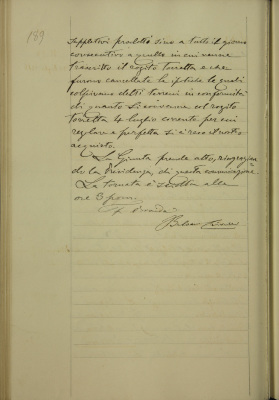 189
suppletivi prodotti sino a tutto il giorno
consecutivo a quello in cui venne
trascritto il rogito Torretta e che
furono cancellate le ipoteche le quali
colpivano detti terreni in conformità
di quanto si convenne col rogito
Torretta 4 luglio corrente per cui
regolare e perfetto si è reso il nostro
acquisto.
La Giunta prende atto, ringraziando
la Presidenza, di questa comunicazione.
La tornata è sciolta alle
ore 3 pom.